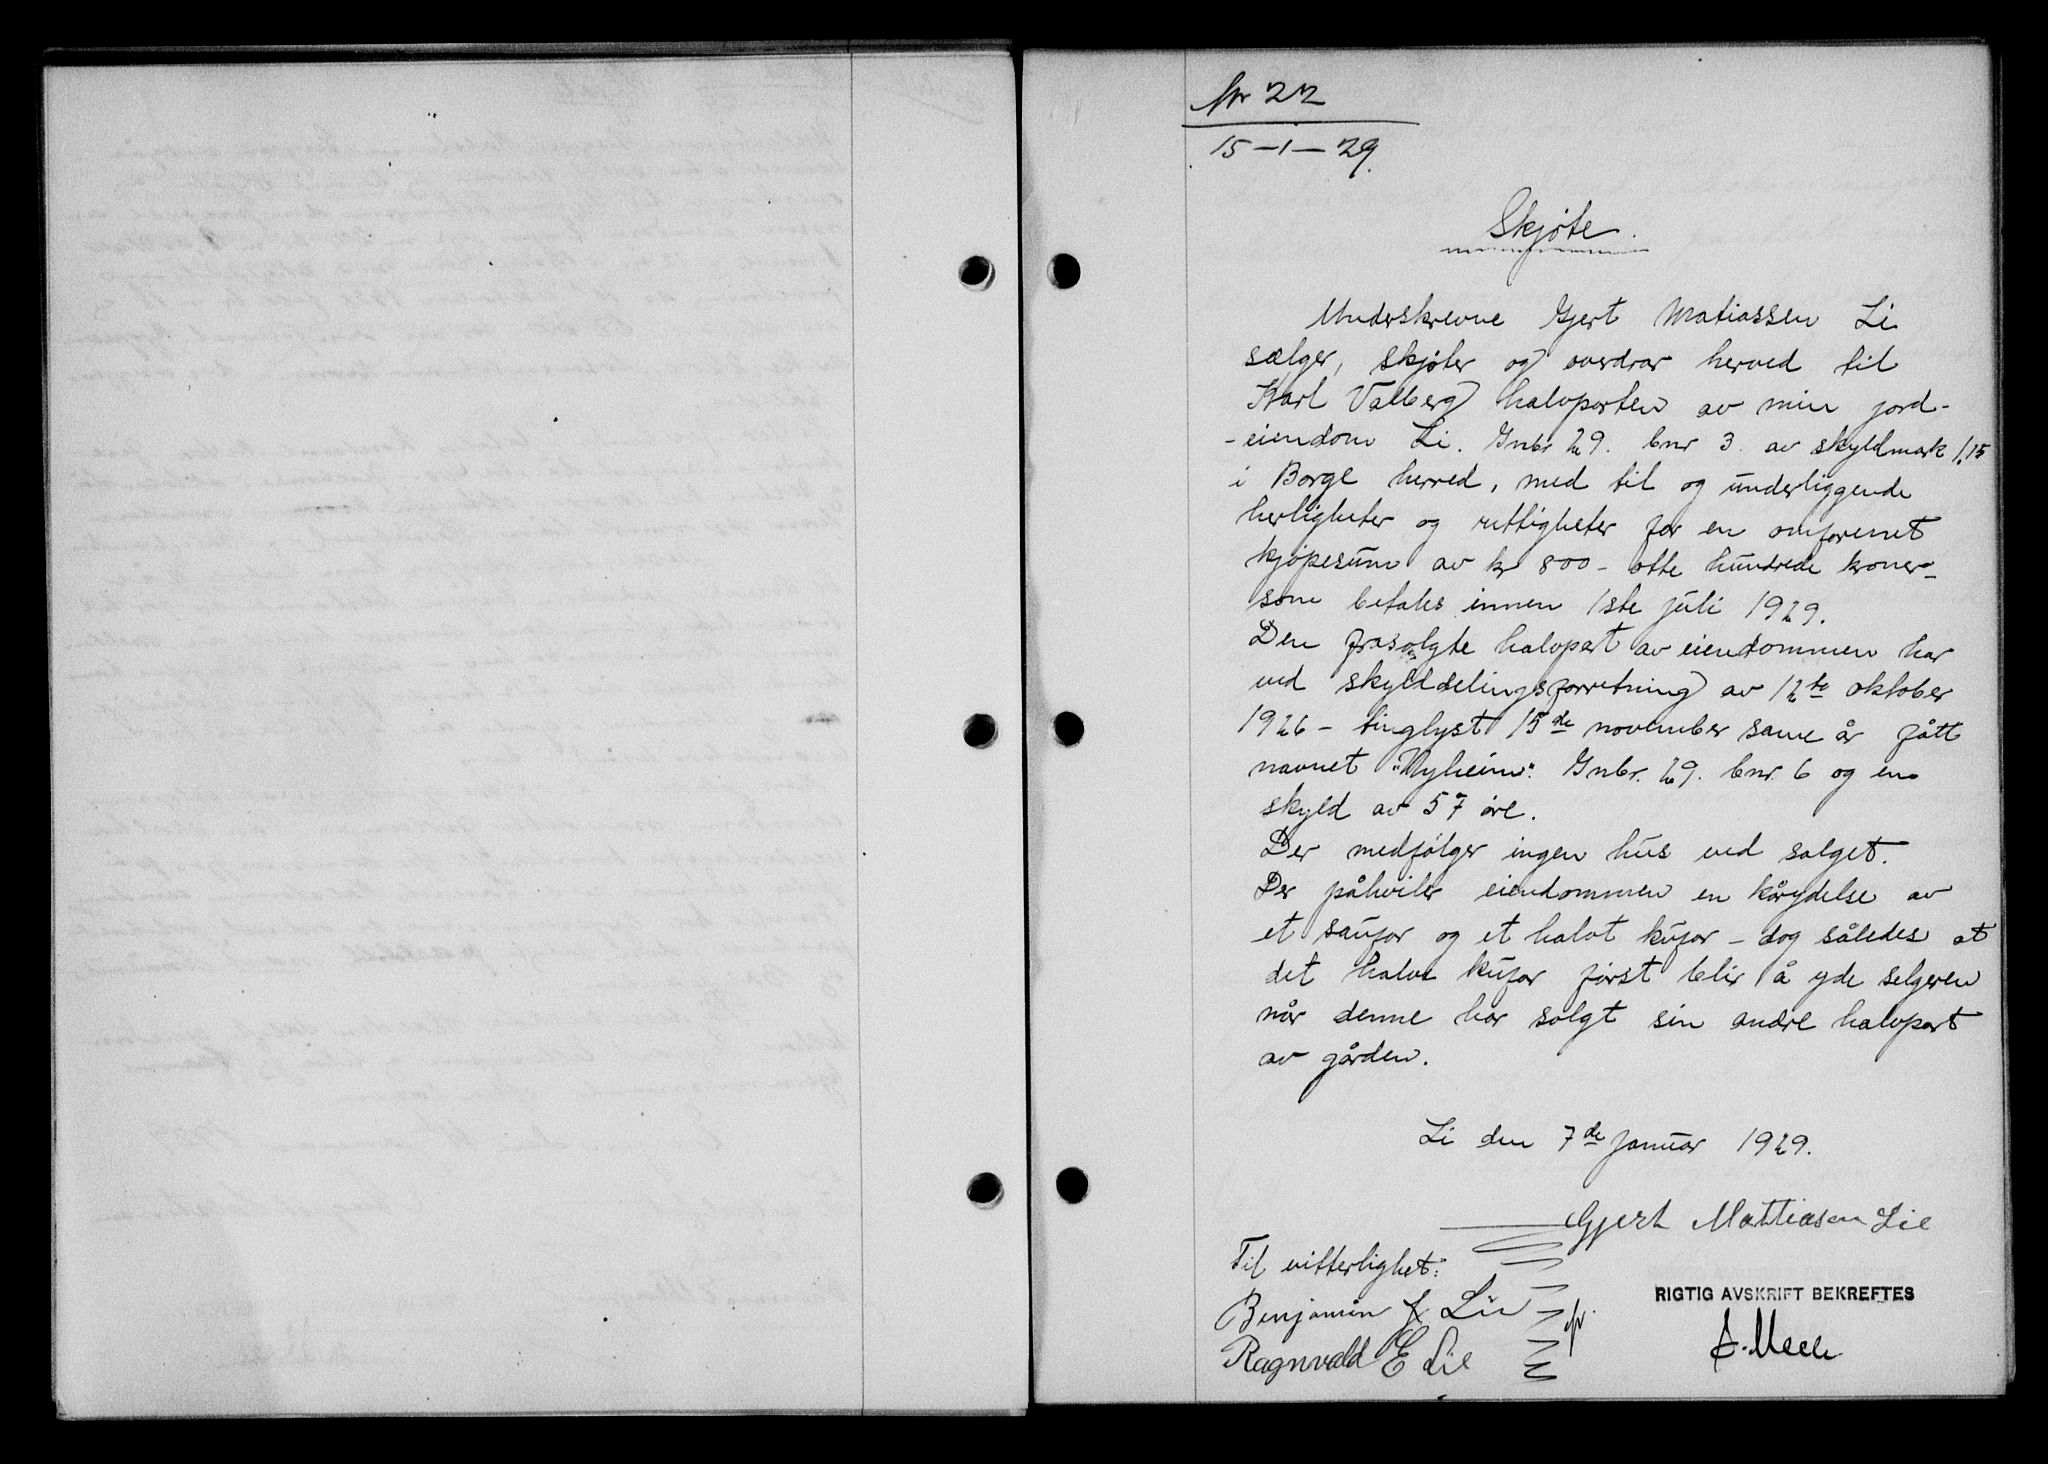 Nr 22
15-1-29.
Skjøte.
Underskrevne Gjert Matiassen Li
sælger, skjøter og overdrar herved til
Karl Valberg halvparten av min jord-
-eiendom Li. Gnbr 29. bnr 3. av skyldmark 1,15
i Borge herred, med til og underliggende
herligheter og rettigheter for en omforenet
kjøpesum av kr 800 - otte hundrede kroner -
som betales innen 1ste juli 1929.
Den frasolgte halvpart av eiendommen har
ved skylddelingsforretning av 12te oktober
1926 - tinglyst 15de november same år fått
navnet "Nyheim". Gnbr. 29. bnr. 6 og en
skyld av 57 øre.
Der medfølger ingen hus ved salget.
Der påhviler eiendommen en kårydelse av
et saufor og et halvt kufor - dog således at
det halve kufor først blir å yde selgeren
når denne har solgt sin andre halvpart
av gården.
Li den 7de januar 1929.
Gjert Mattiasen Lie
Til vitterlighet:
Benjamin Lie
Ragnvald E Lie
RIGTIG AVSKRIFT BEKREFTES